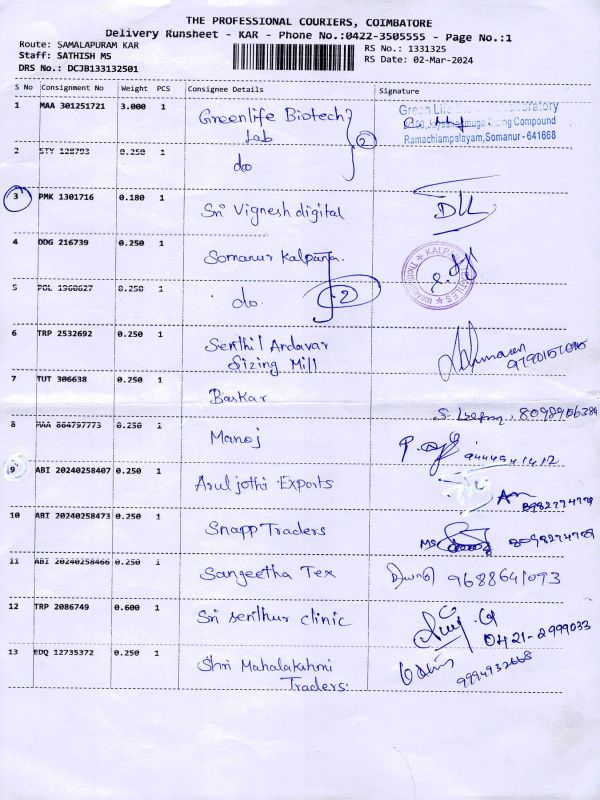 THE PROFESSIONAL COURIERS, COIMBATORE
Delivery Runsheet - KAR - Phone No.:0422-3505555 - Page No.:1
Route: SAMALAPURAM KAR
RS No.: 1331325
Staff: SATHISH MS
RS Date: 02-Mar-2024
DRS No.: DCJB133132501
S No Consignment No Weight PCS Consignee Details Signature
1 MAA 301251721 3.000 1 Greenlife Biotech
Lab
2
Ramachiampalayam, Somanur - 641668
2 STY 128793 0.250 1 do
3 PMK 1301716 0.180 1 Sri Vignesh digital
4 DDG 216739 0.250 1 Somanur Kalpana
5 POL 1968627 0.250 1 do. 2
6 TRP 2532692 0.250 1 Senthil Andavar
Sizing Mill
7 TUT 306638 0.250 1 Baskar
8 MAA 864797773 0.250 1 Manoj
9444541412
9 ABI 20240258407 0.250 1 Aruljothi Exports
10 ABI 20240258473 0.250 1 Snapp Traders
MS
11 ABI 20240258466 0.250 1 Sangeetha Tex
9688641093
12 TRP 2086749 0.600 1 Sri Senthur clinic
0421-2999033
13 EDQ 12735372 0.250 1 Shri Mahalakshmi
Traders.
9994932668